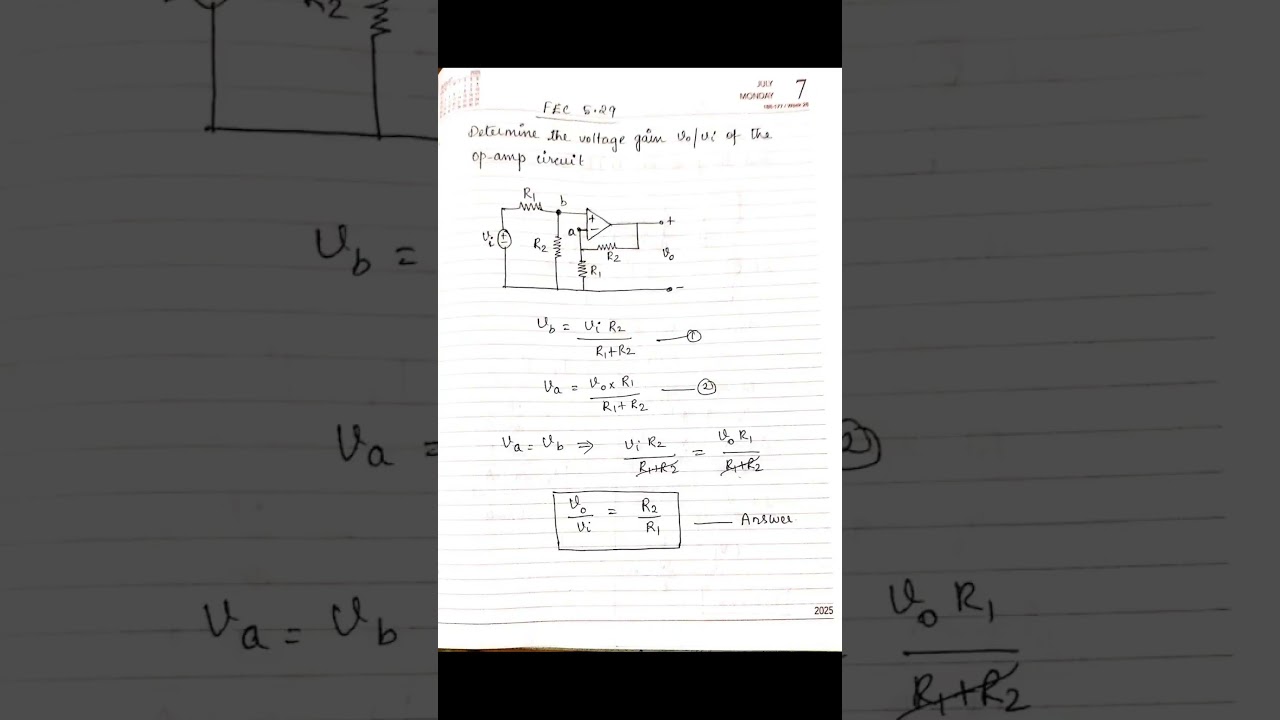 JULY
MONDAY
7
188-177 / Week 28
FEC 5.29
Determine the voltage gain vo/vi of the
op-amp circuit
R1
b
+
a
−
+
vi
+
−
R2
R2
vo
R1
−
Vb = Vi R2 / R1+R2 —— ①
Va = Vo x R1 / R1+R2 —— ②
Va = Vb ⇒ Vi R2 / R1+R2 = Vo R1 / R1+R2
Vo / Vi = R2 / R1 —— Answer
2025
R2
Vb =
Va =
2
Va = Vb
Vo R1
R1+R2